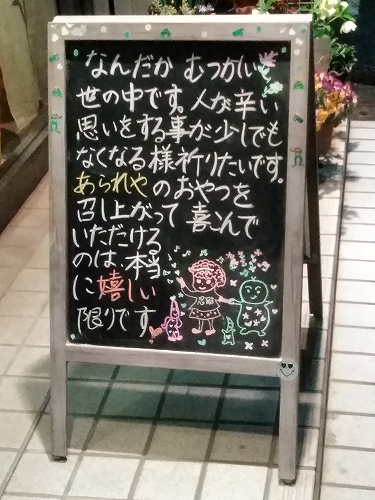 なんだか むつかしい
世の中です。人が辛い
思いをする事が少しでも
なくなる様祈りたいです。
あられやのおやつを
召し上がって 喜んで
いただける
のは、本当
に嬉しい
限りです